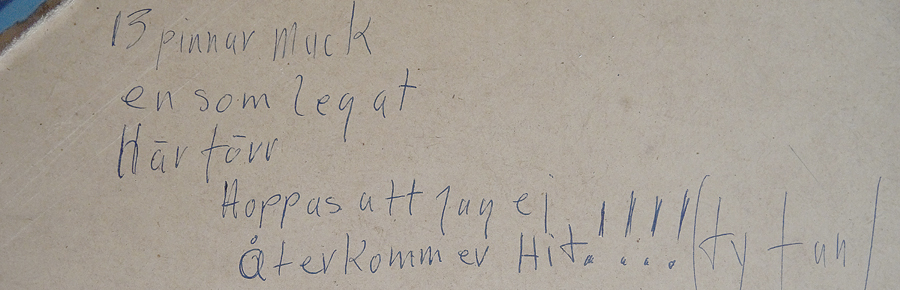 13 pinnar Muck
en som legat
Här förr
Hoppas att jag ej
Återkommer Hit!!!!